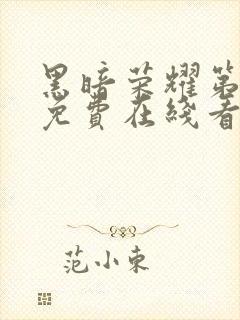 黑暗荣耀第
免費在綫看
范小東